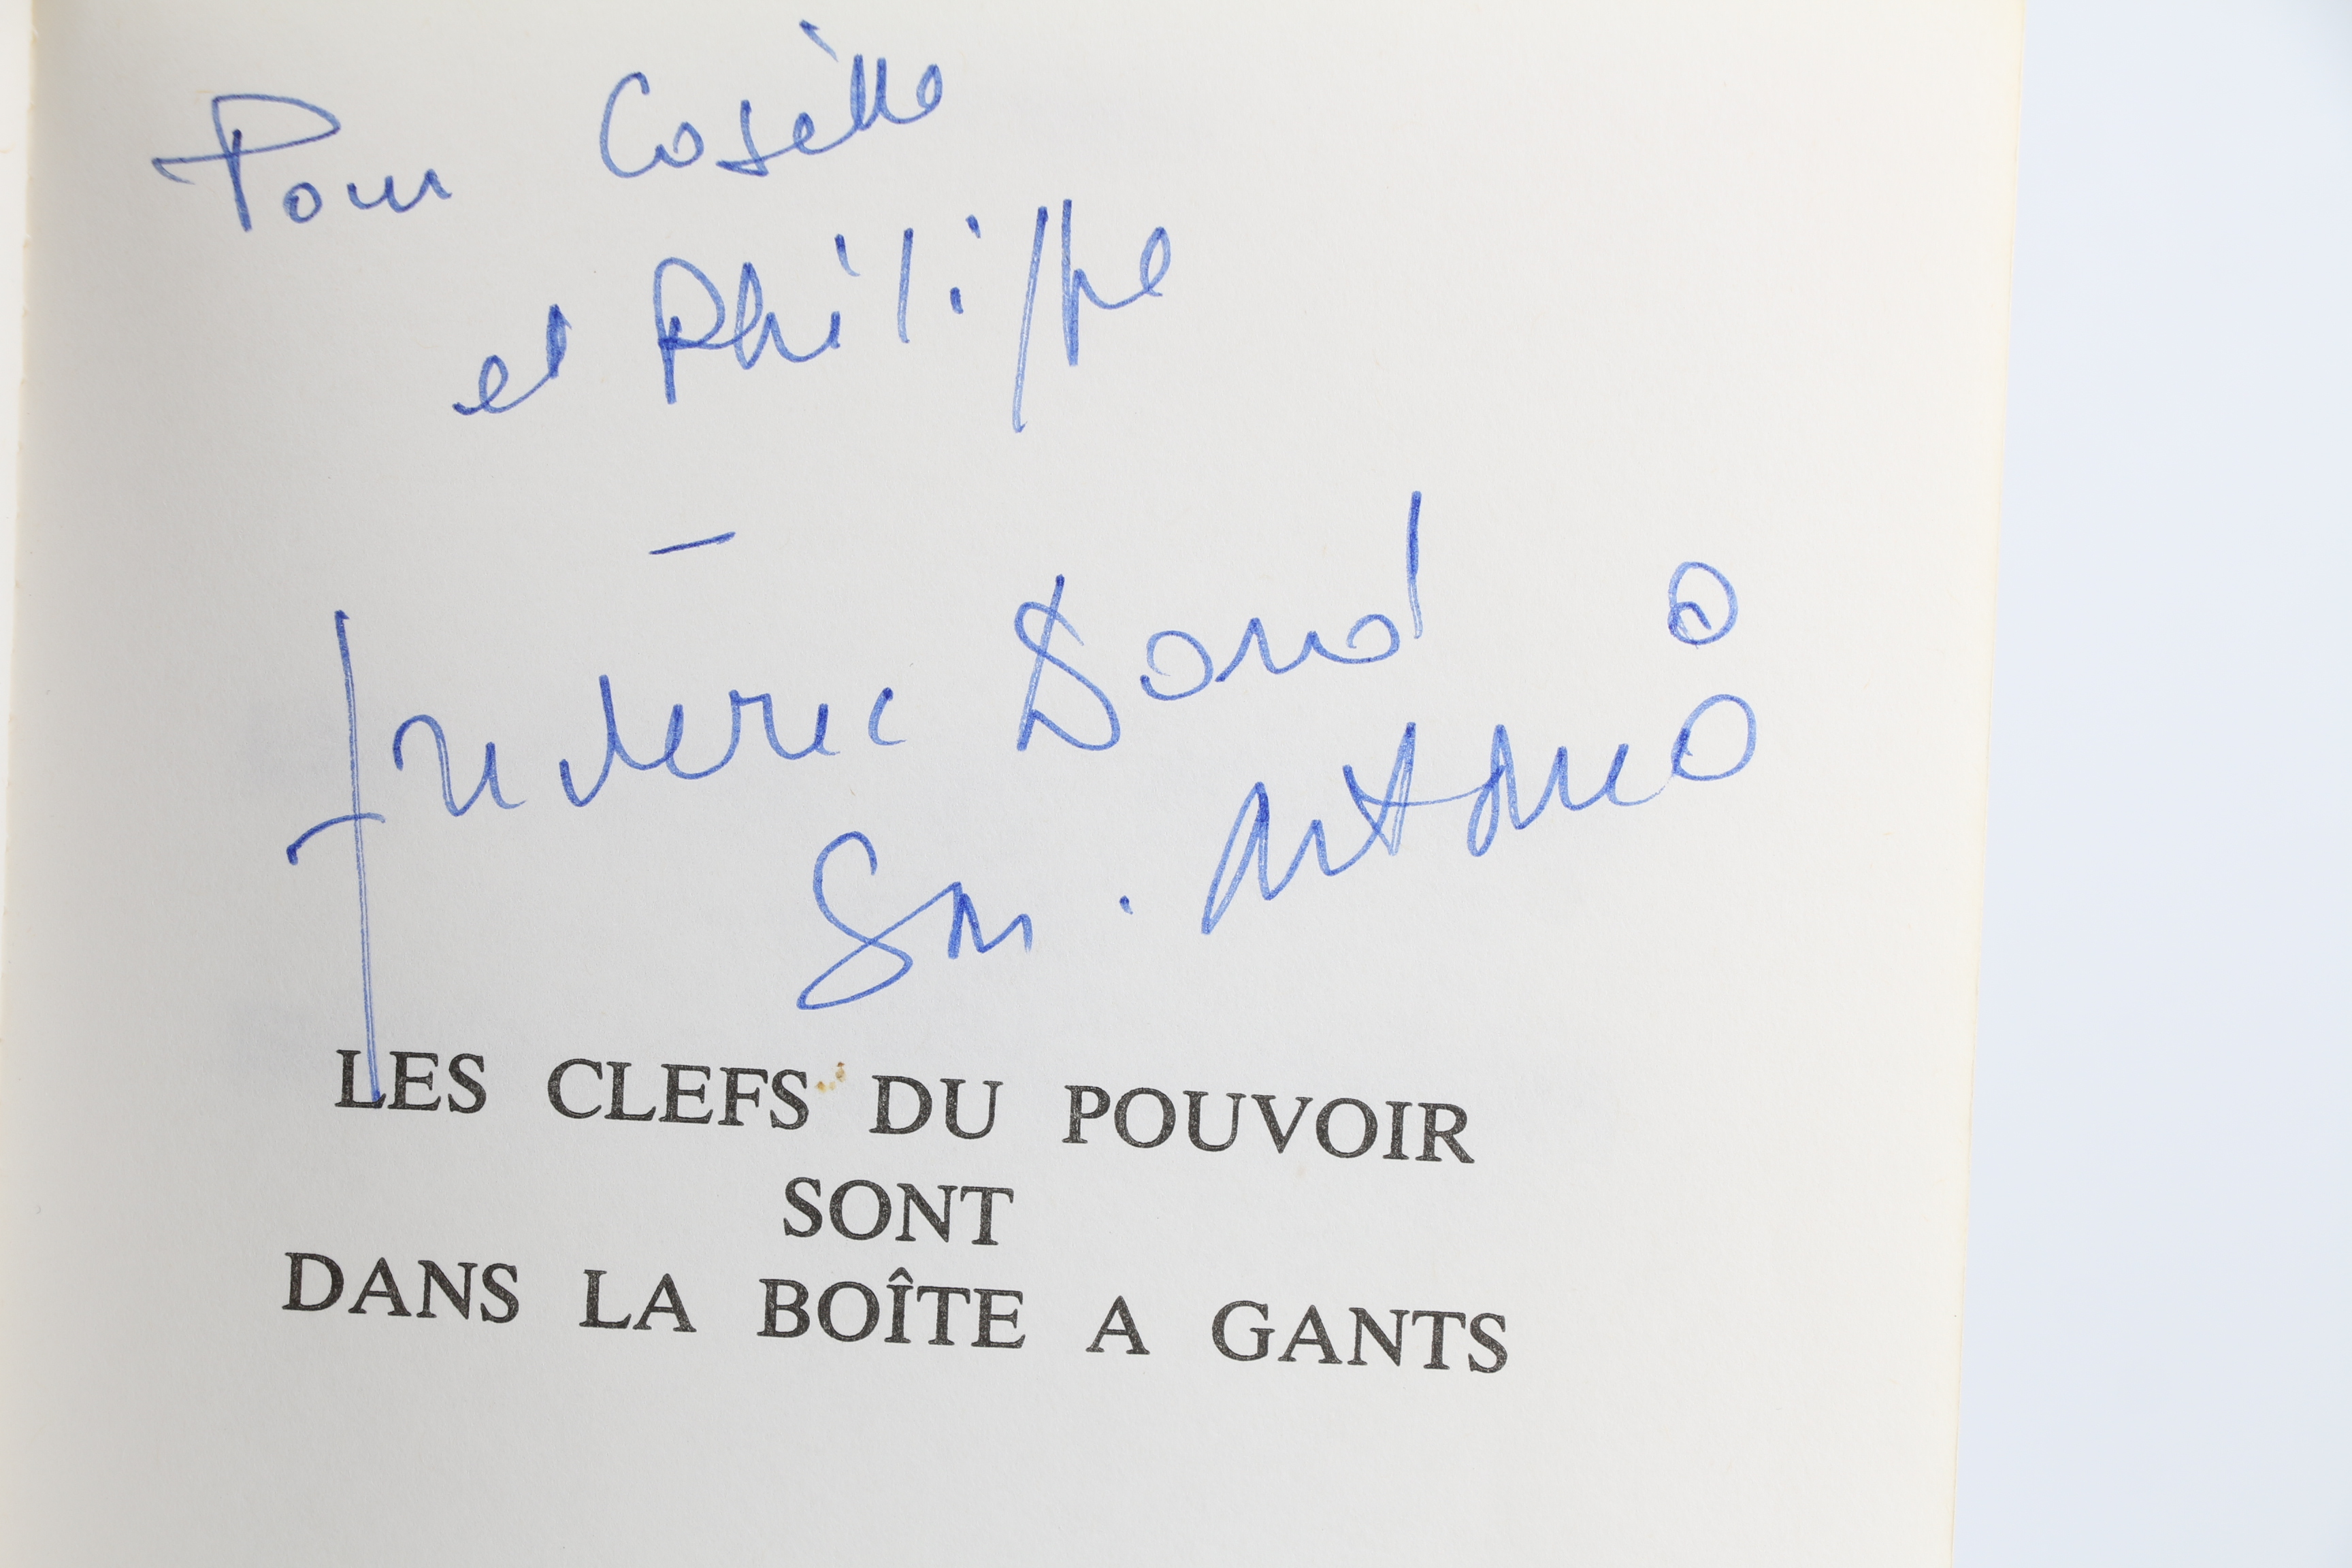 Pour Cosette
et Philippe
—
Frédéric Dard
San-Antonio
LES CLEFS DU POUVOIR
SONT
DANS LA BOÎTE A GANTS